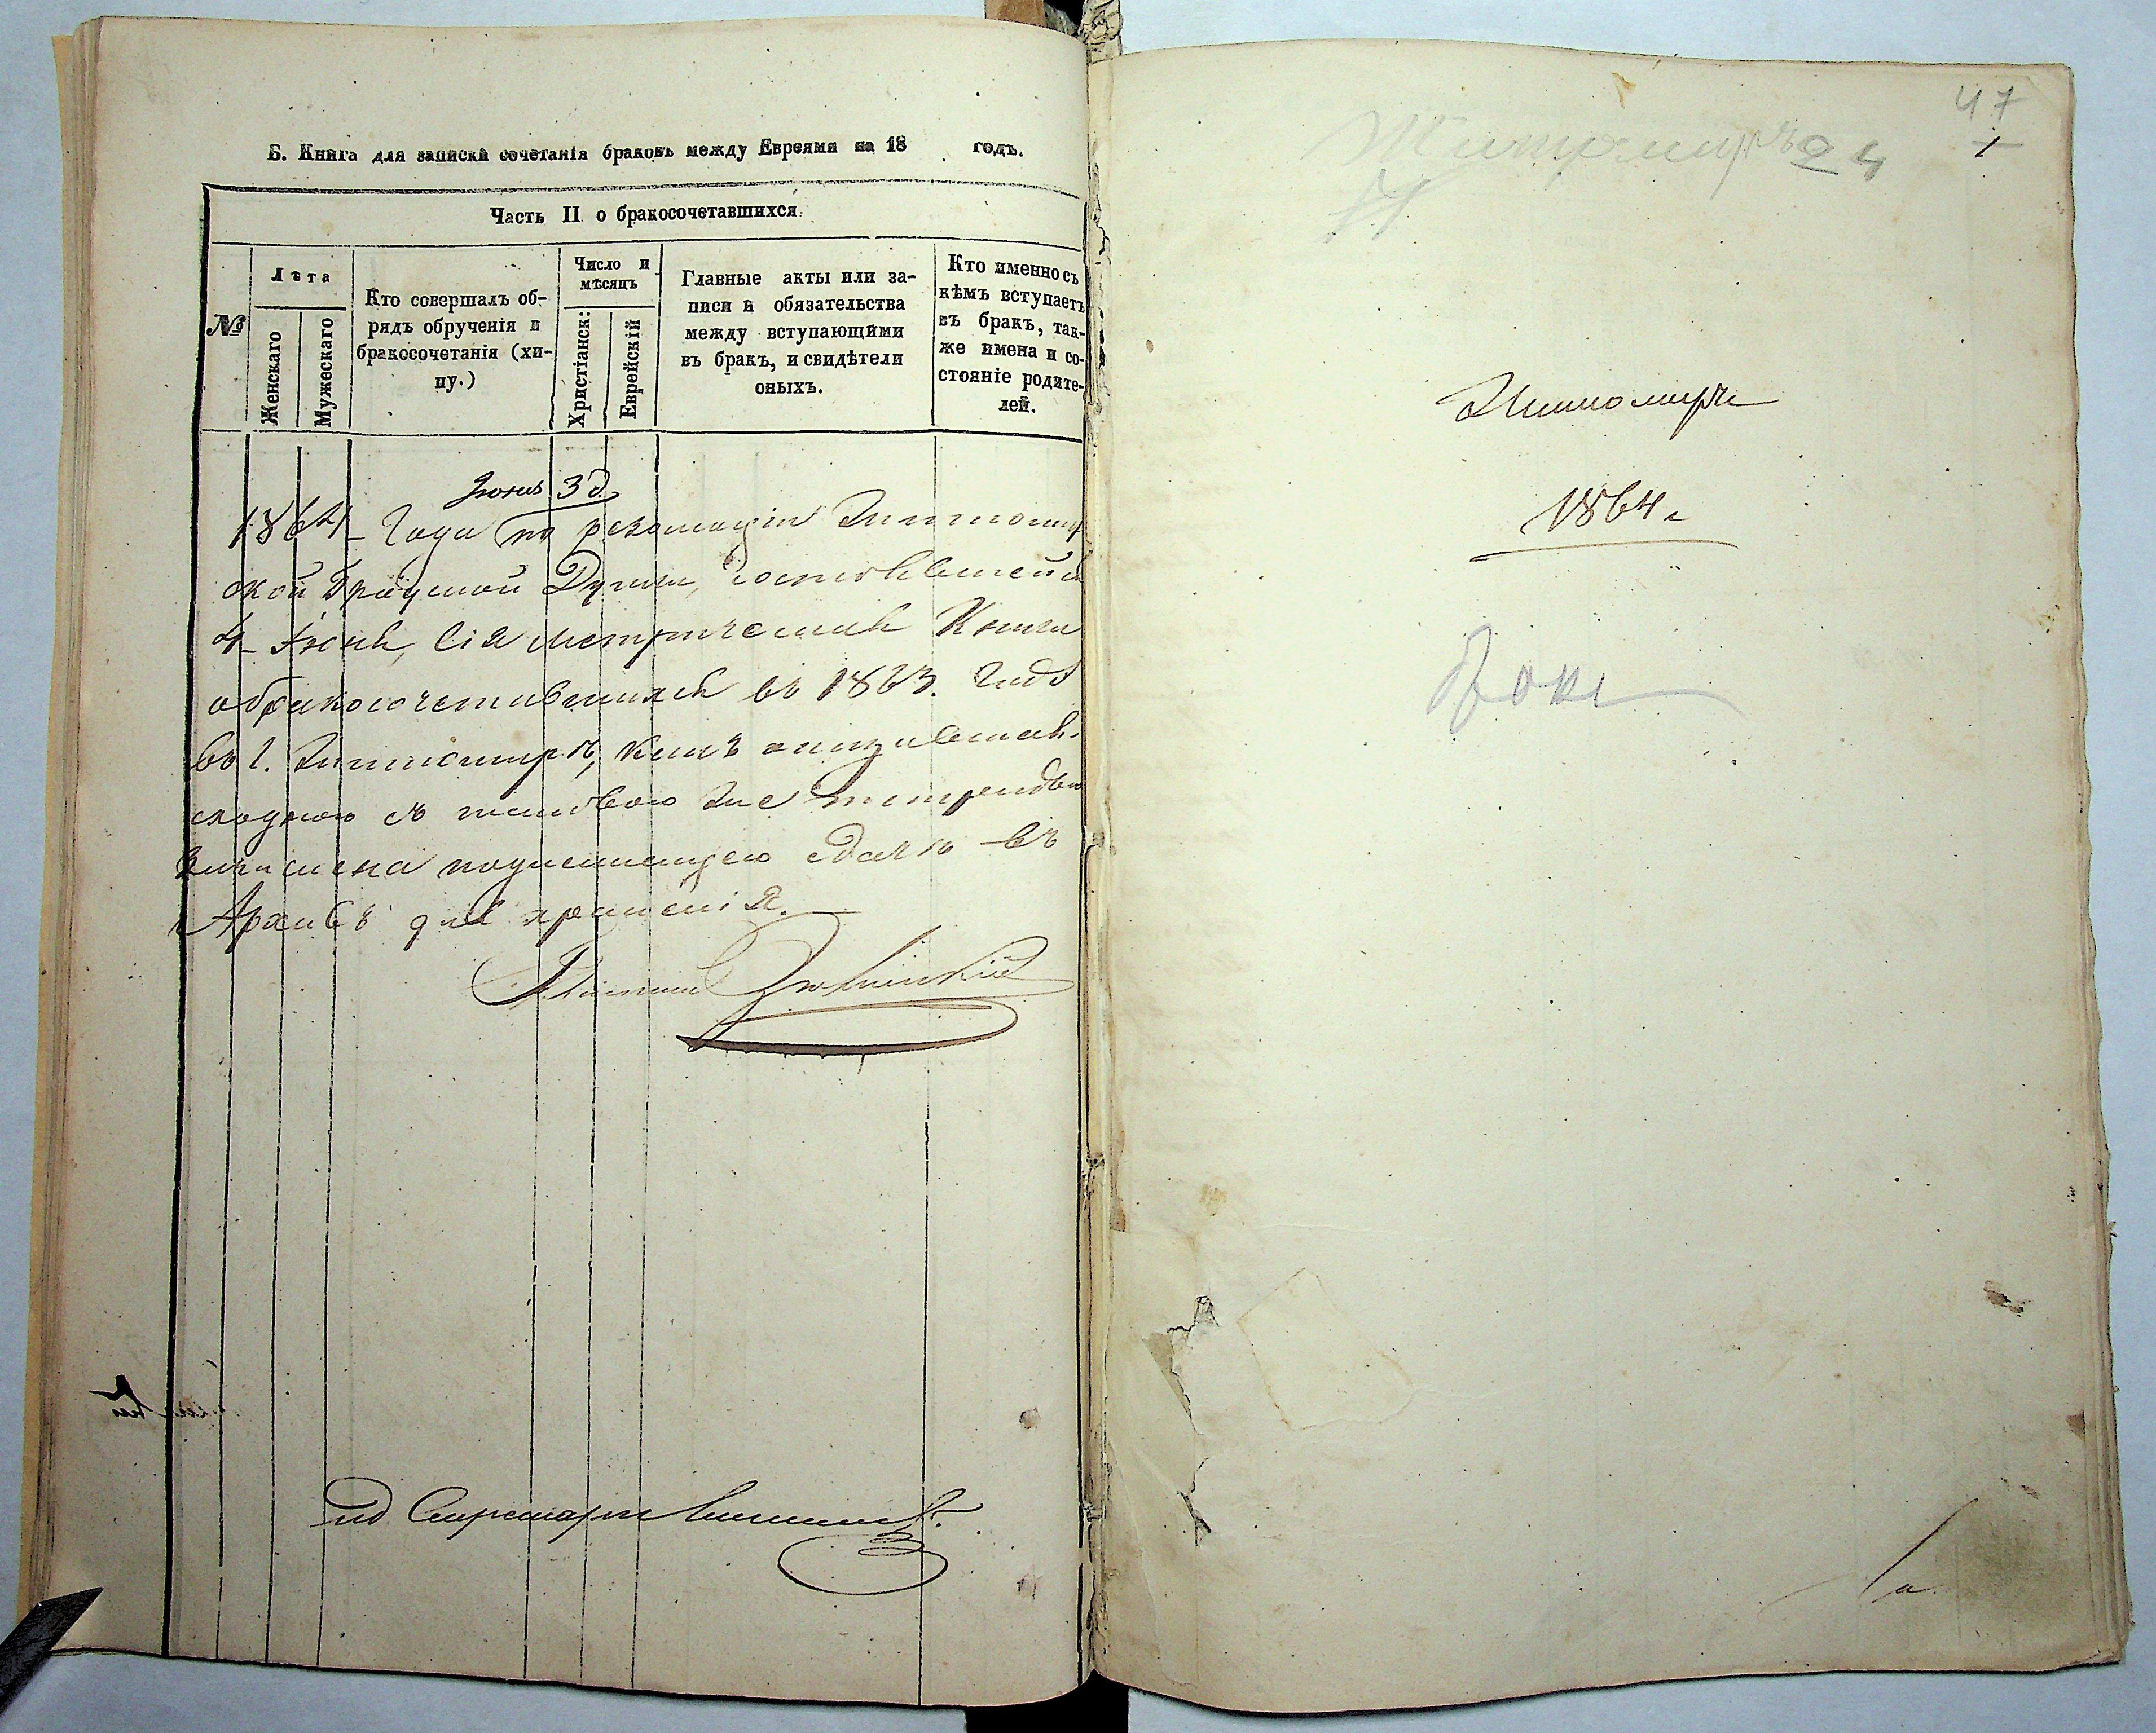 Б. Книга для записки сочетанія браковъ между Евреями на 18 годъ.
Часть II о бракосочетавшихся.
№
Лѣта
Женскаго
Мужескаго
Кто совершалъ об-
рядъ обрученія и
бракосочетанія (хи-
пу.)
Число и
мѣсяцъ
Христіанск:
Еврейскій
Главные акты или за-
писи и обязательства
между вступающими
въ бракъ, и свидѣтели
оныхъ.
Кто именно съ
кѣмъ вступаетъ
въ бракъ, так-
же имена и со-
стояніе родите-
лей.
Іюня 3 д.
1864 Года по резолюціи Житомир
ской Градской Думы, состоявшейся
4 Іюня, сія Метрическая Книга
о бракосочетавшихся въ 1863. Годѣ
въ г. Житомирѣ, какъ оказавшаяся
сходною съ таковою же тетрадью
подлежащею сдачѣ въ
Архивъ для храненія.
Секретарь
Житомиръ 24
47
1
Житомиръ
1864 г